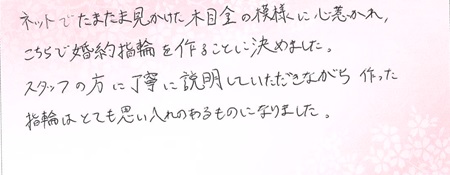 ネットでたまたま見かけた木目金の模様に心惹かれ、
こちらで婚約指輪を作ることに決めました。
スタッフの方に丁寧に説明していただきながら 作った
指輪はとても思い入れのあるものになりました。